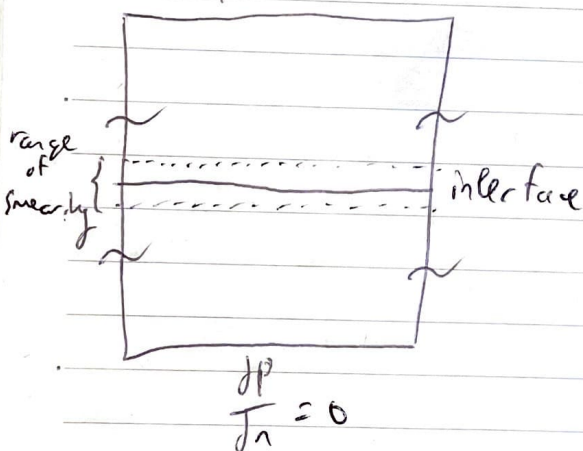 range
of
smearing
interface
∂p
∂n = 0